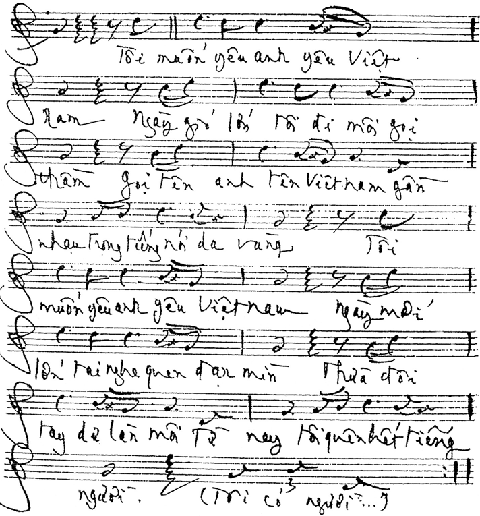 Tôi muốn yêu anh yêu Việt
Nam Ngày gió lớn tôi đi môi gọi
thầm gọi tên anh tên Việt nam gần
nhau trong tiếng nói da vàng Tôi
muốn yêu anh yêu Việt nam ngày mới
lớn tai nghe quen đạn mìn Thừa đôi
tay dư làn môi Từ nay tôi quên hết tiếng
người. (Tôi có người...)